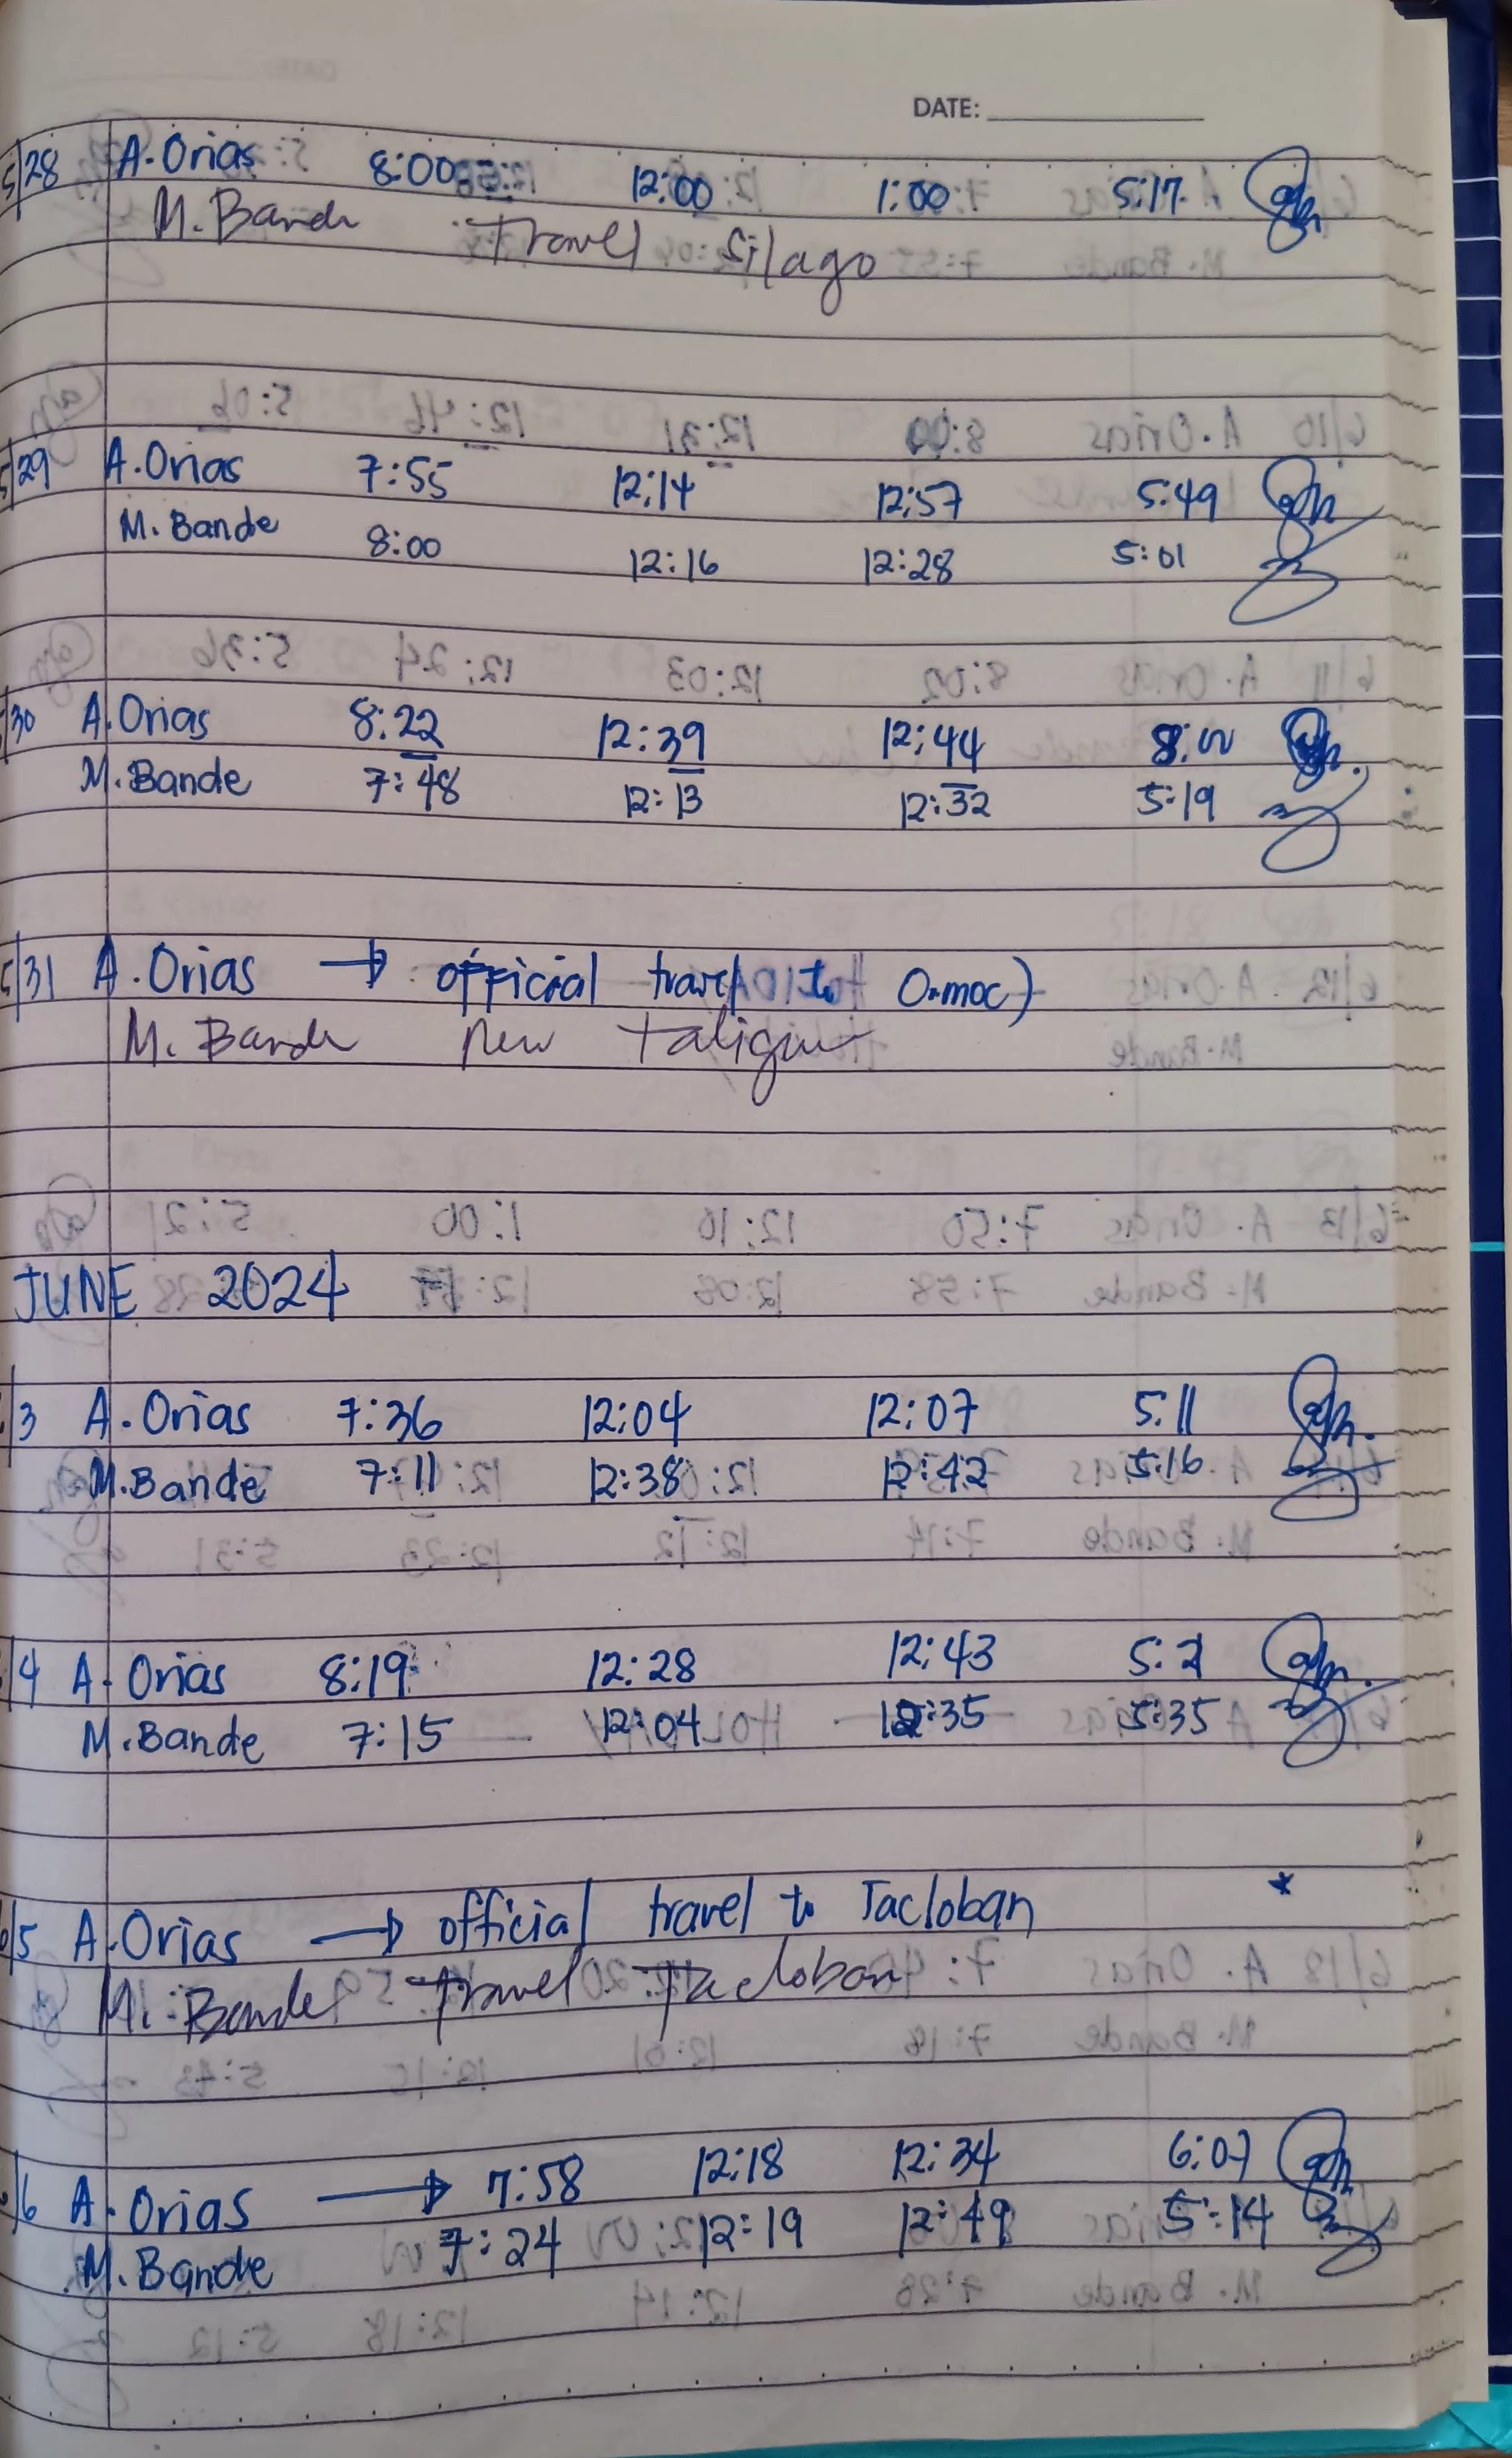 DATE:
5/28 A. Orias 8:00 12:00 1:00 5:17
M. Bande Travel Silago
5/29 A. Orias 7:55 12:14 12:57 5:49
M. Bande 8:00 12:16 12:28 5:01
/30 A. Orias 8:22 12:39 12:44 8:00
M. Bande 7:48 12:13 12:32 5:19
5/31 A. Orias → official travel to Ormoc)
M. Bande new
JUNE 2024
/3 A. Orias 7:36 12:04 12:07 5:11
M. Bande 7:11 12:38 12:42 5:16
/4 A. Orias 8:19 12:28 12:43
M. Bande 7:15 12:04 12:35 5:35
6/5 A. Orias → official travel to Tacloban *
M. Bande Travel Tacloban
/6 A. Orias → 7:58 12:18 12:34 6:07
M. Bande 7:24 12:19 12:49 5:14